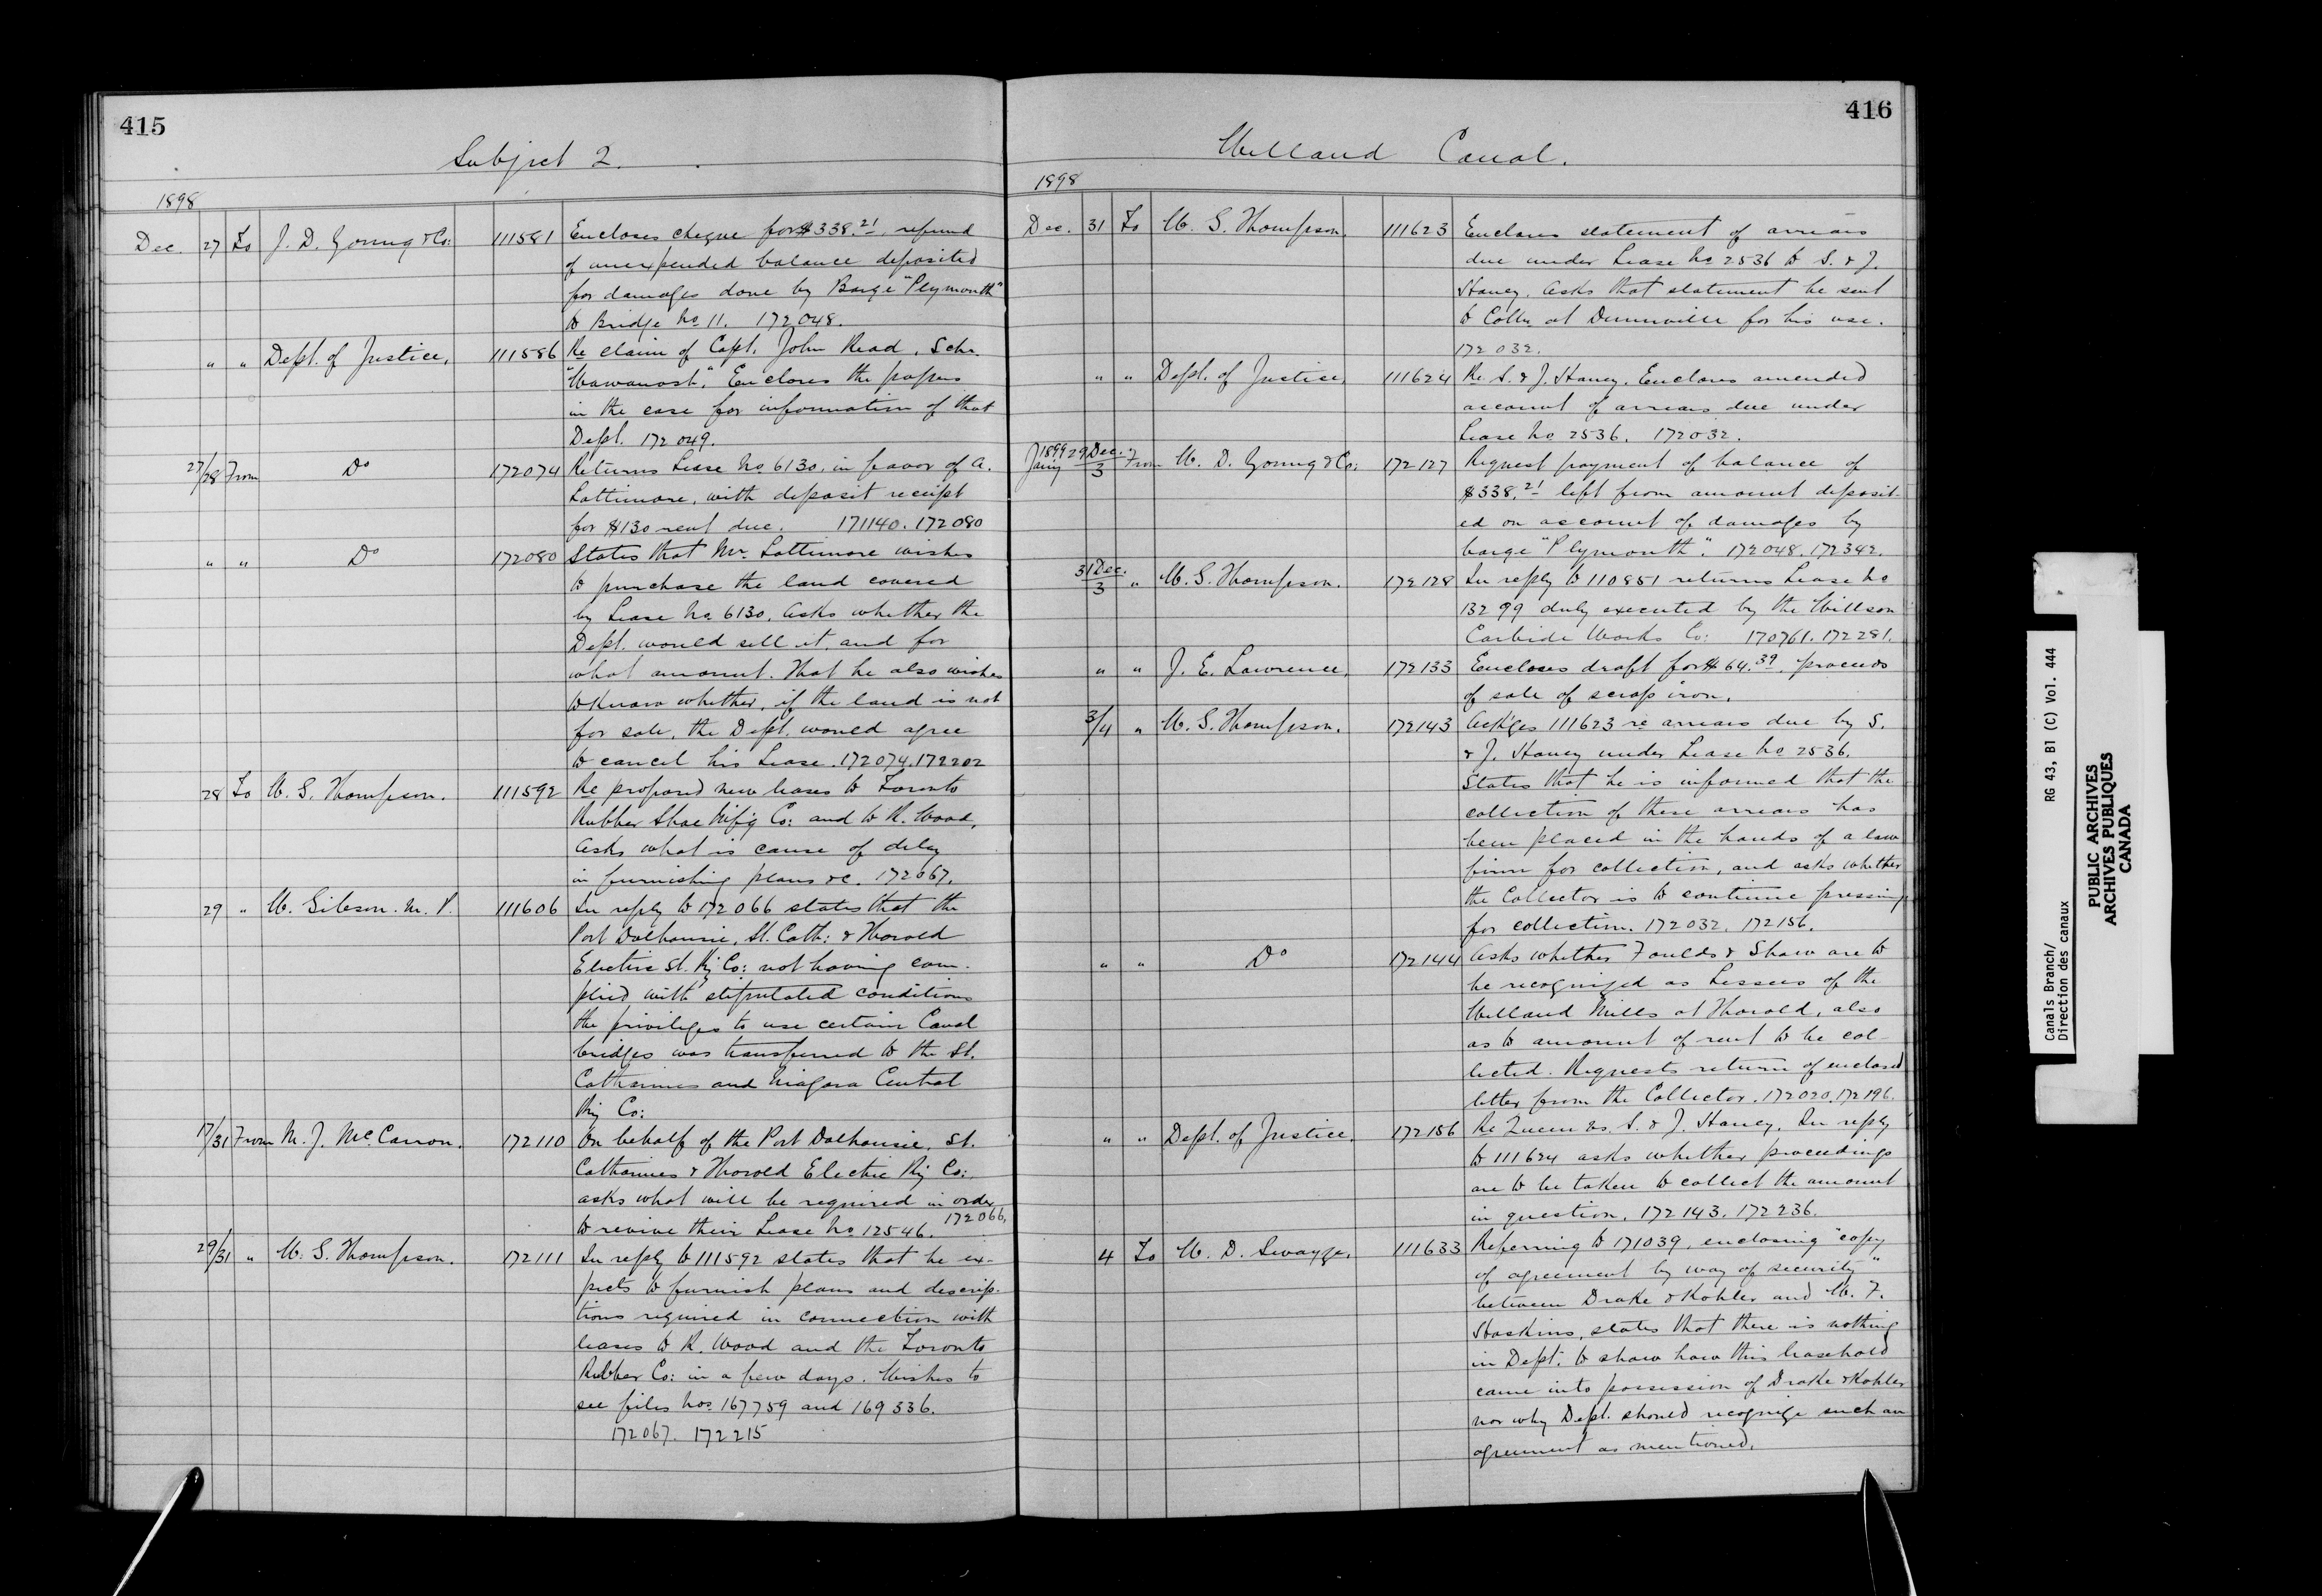 415
Subject 2.
1898
Dec. 27 To J. D. Young & Co: 111581 Encloses cheque for $338.21, refund
of unexpended balance deposited
for damages done by Barge "Plymouth"
to Bridge No 11. 172048.
" " Dept. of Justice, 111586 Re claim of Capt. John Read, Schr.
"Wawanosh." Encloses the papers
in the case for information of that
Dept. 172049.
27/28 From Do 172074 Returns Lease No 6130, in favor of A.
Lattimore, with deposit receipt
for $130 rent due. 171140. 172080
" " Do 172080 States that Mr. Lattimore wishes
to purchase the land covered
by Lease No. 6130. Asks whether the
Dept. would sell it, and for
what amount. That he also wishes
to know whether, if the land is not
for sale, the Dept. would agree
to cancel his Lease. 172074. 172202
28 To W. S. Thompson. 111592 Re proposed new leases to Toronto
Rubber Shoe Mf'g Co: and to R. Wood,
Asks what is cause of delay
in furnishing plans &c. 172067.
29 " W. Gibson. M. P. 111606 In reply to 172066 states that the
Port Dalhousie, St. Cath: & Thorold
Electric St. Ry Co: not having com-
plied with stipulated conditions
the privileges to use certain Canal
bridges was transferred to the St.
Catharines and Niagara Central
Ry Co:
17/31 From M. J. McCarron. 172110 On behalf of the Port Dalhousie, St.
Catharines & Thorold Electric Ry Co:
asks what will be required in order
to revive their Lease No 12546. 172066.
29/31 " W. S. Thompson. 172111 In reply to 111592 states that he ex-
pects to furnish plans and descrip-
tions required in connection with
leases to R. Wood and the Toronto
Rubber Co: in a few days. Wishes to
see files Nos 167759 and 169336.
172067. 172215
416
Welland Canal.
1898
Dec. 31 To W. S. Thompson. 111623 Encloses statement of arrears
due under Lease No 2536 to S. & J.
Haney. Asks that statement be sent
to Collr. at Dunnville for his use.
172032.
" " Dept. of Justice, 111624 Re S. & J. Haney. Encloses amended
account of arrears due under
Lease No 2536. 172032.
1899 Jany 29 Dec./3 From W. D. Young & Co: 172127 Request payment of balance of
$338.21 left from amount deposit-
ed on account of damages by
barge "Plymouth". 172048. 172342.
31 Dec./3 " W. S. Thompson. 172128 In reply to 110851 returns Lease No
13299 duly executed by the Willson
Carbide Works Co: 170761. 172281.
" " J. E. Lawrence, 172133 Encloses draft for $64.39, proceeds
of sale of scrap iron.
3/4 " W. S. Thompson. 172143 Ack'ges 111623 re arrears due by S.
& J. Haney under Lease No 2536.
States that he is informed that the
collection of these arrears has
been placed in the hands of a law
firm for collection, and asks whether
the Collector is to continue pressing
for collection. 172032. 172156.
" " Do 172144 Asks whether Foulds & Shaw are to
be recognized as Lessees of the
Welland Mills at Thorold, also
as to amount of rent to be col-
lected. Requests return of enclosed
letter from the Collector. 172020. 172196.
" " Dept. of Justice. 172156 Re Queen vs. S. & J. Haney. In reply
to 111624 asks whether proceedings
are to be taken to collect the amount
in question. 172143. 172236.
4 To W. D. Swayze, 111633 Referring to 171039, enclosing "copy
of agreement by way of security"
between Drake & Kohler and W. F.
Haskins, states that there is nothing
in Dept. to show how this leasehold
came into possession of Drake & Kohler
nor why Dept. should recognize such an
agreement as mentioned.
Canals Branch/ RG 43, B1 (C) Vol. 444
Direction des canaux
PUBLIC ARCHIVES
ARCHIVES PUBLIQUES
CANADA